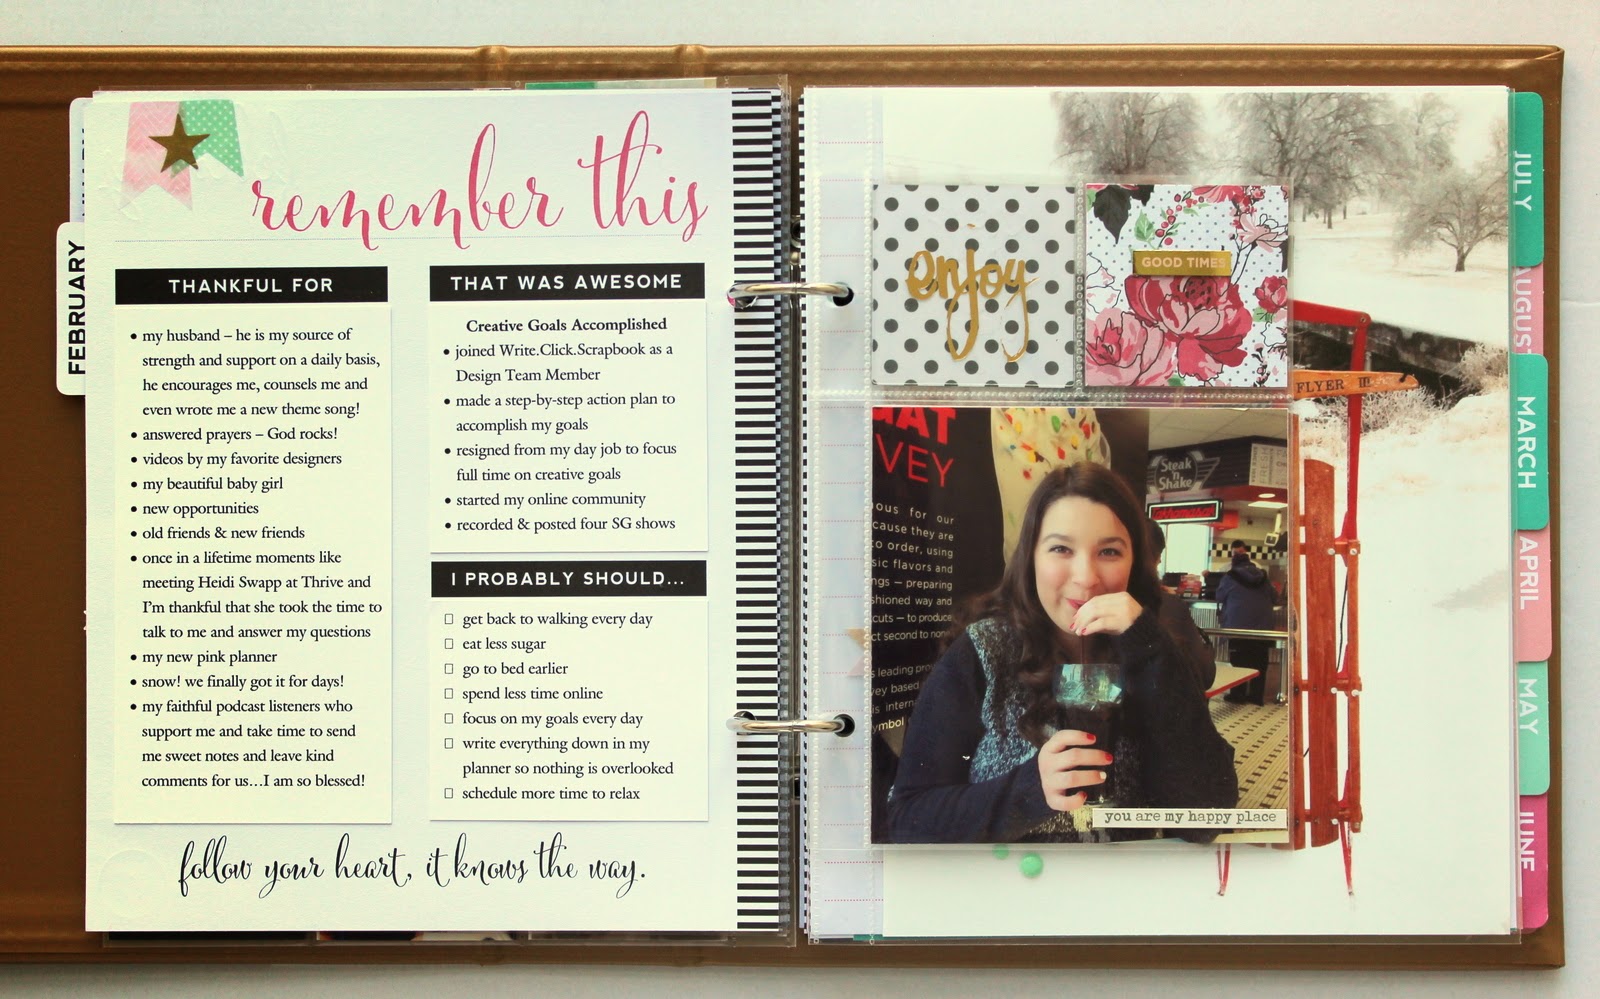 FEBRUARY
remember this
THANKFUL FOR
• my husband – he is my source of
strength and support on a daily basis,
he encourages me, counsels me and
even wrote me a new theme song!
• answered prayers – God rocks!
• videos by my favorite designers
• my beautiful baby girl
• new opportunities
• old friends & new friends
• once in a lifetime moments like
meeting Heidi Swapp at Thrive and
I'm thankful that she took the time to
talk to me and answer my questions
• my new pink planner
• snow! we finally got it for days!
• my faithful podcast listeners who
support me and take time to send
me sweet notes and leave kind
comments for us…I am so blessed!
THAT WAS AWESOME
Creative Goals Accomplished
• joined Write.Click.Scrapbook as a
Design Team Member
• made a step-by-step action plan to
accomplish my goals
• resigned from my day job to focus
full time on creative goals
• started my online community
• recorded & posted four SG shows
I PROBABLY SHOULD...
☐ get back to walking every day
☐ eat less sugar
☐ go to bed earlier
☐ spend less time online
☐ focus on my goals every day
☐ write everything down in my
planner so nothing is overlooked
☐ schedule more time to relax
follow your heart, it knows the way.
enjoy
GOOD TIMES
FLYER III
VEY
Steak
'n
Shake
ous for our
cause they are
to order, using
sic flavors and
ngs — preparing
shioned way and
cuts — to produce
ct second to none
s leading
vey based
is intern
ymbol
you are my happy place
JULY
AUGUS
MARCH
APRIL
MAY
JUNE